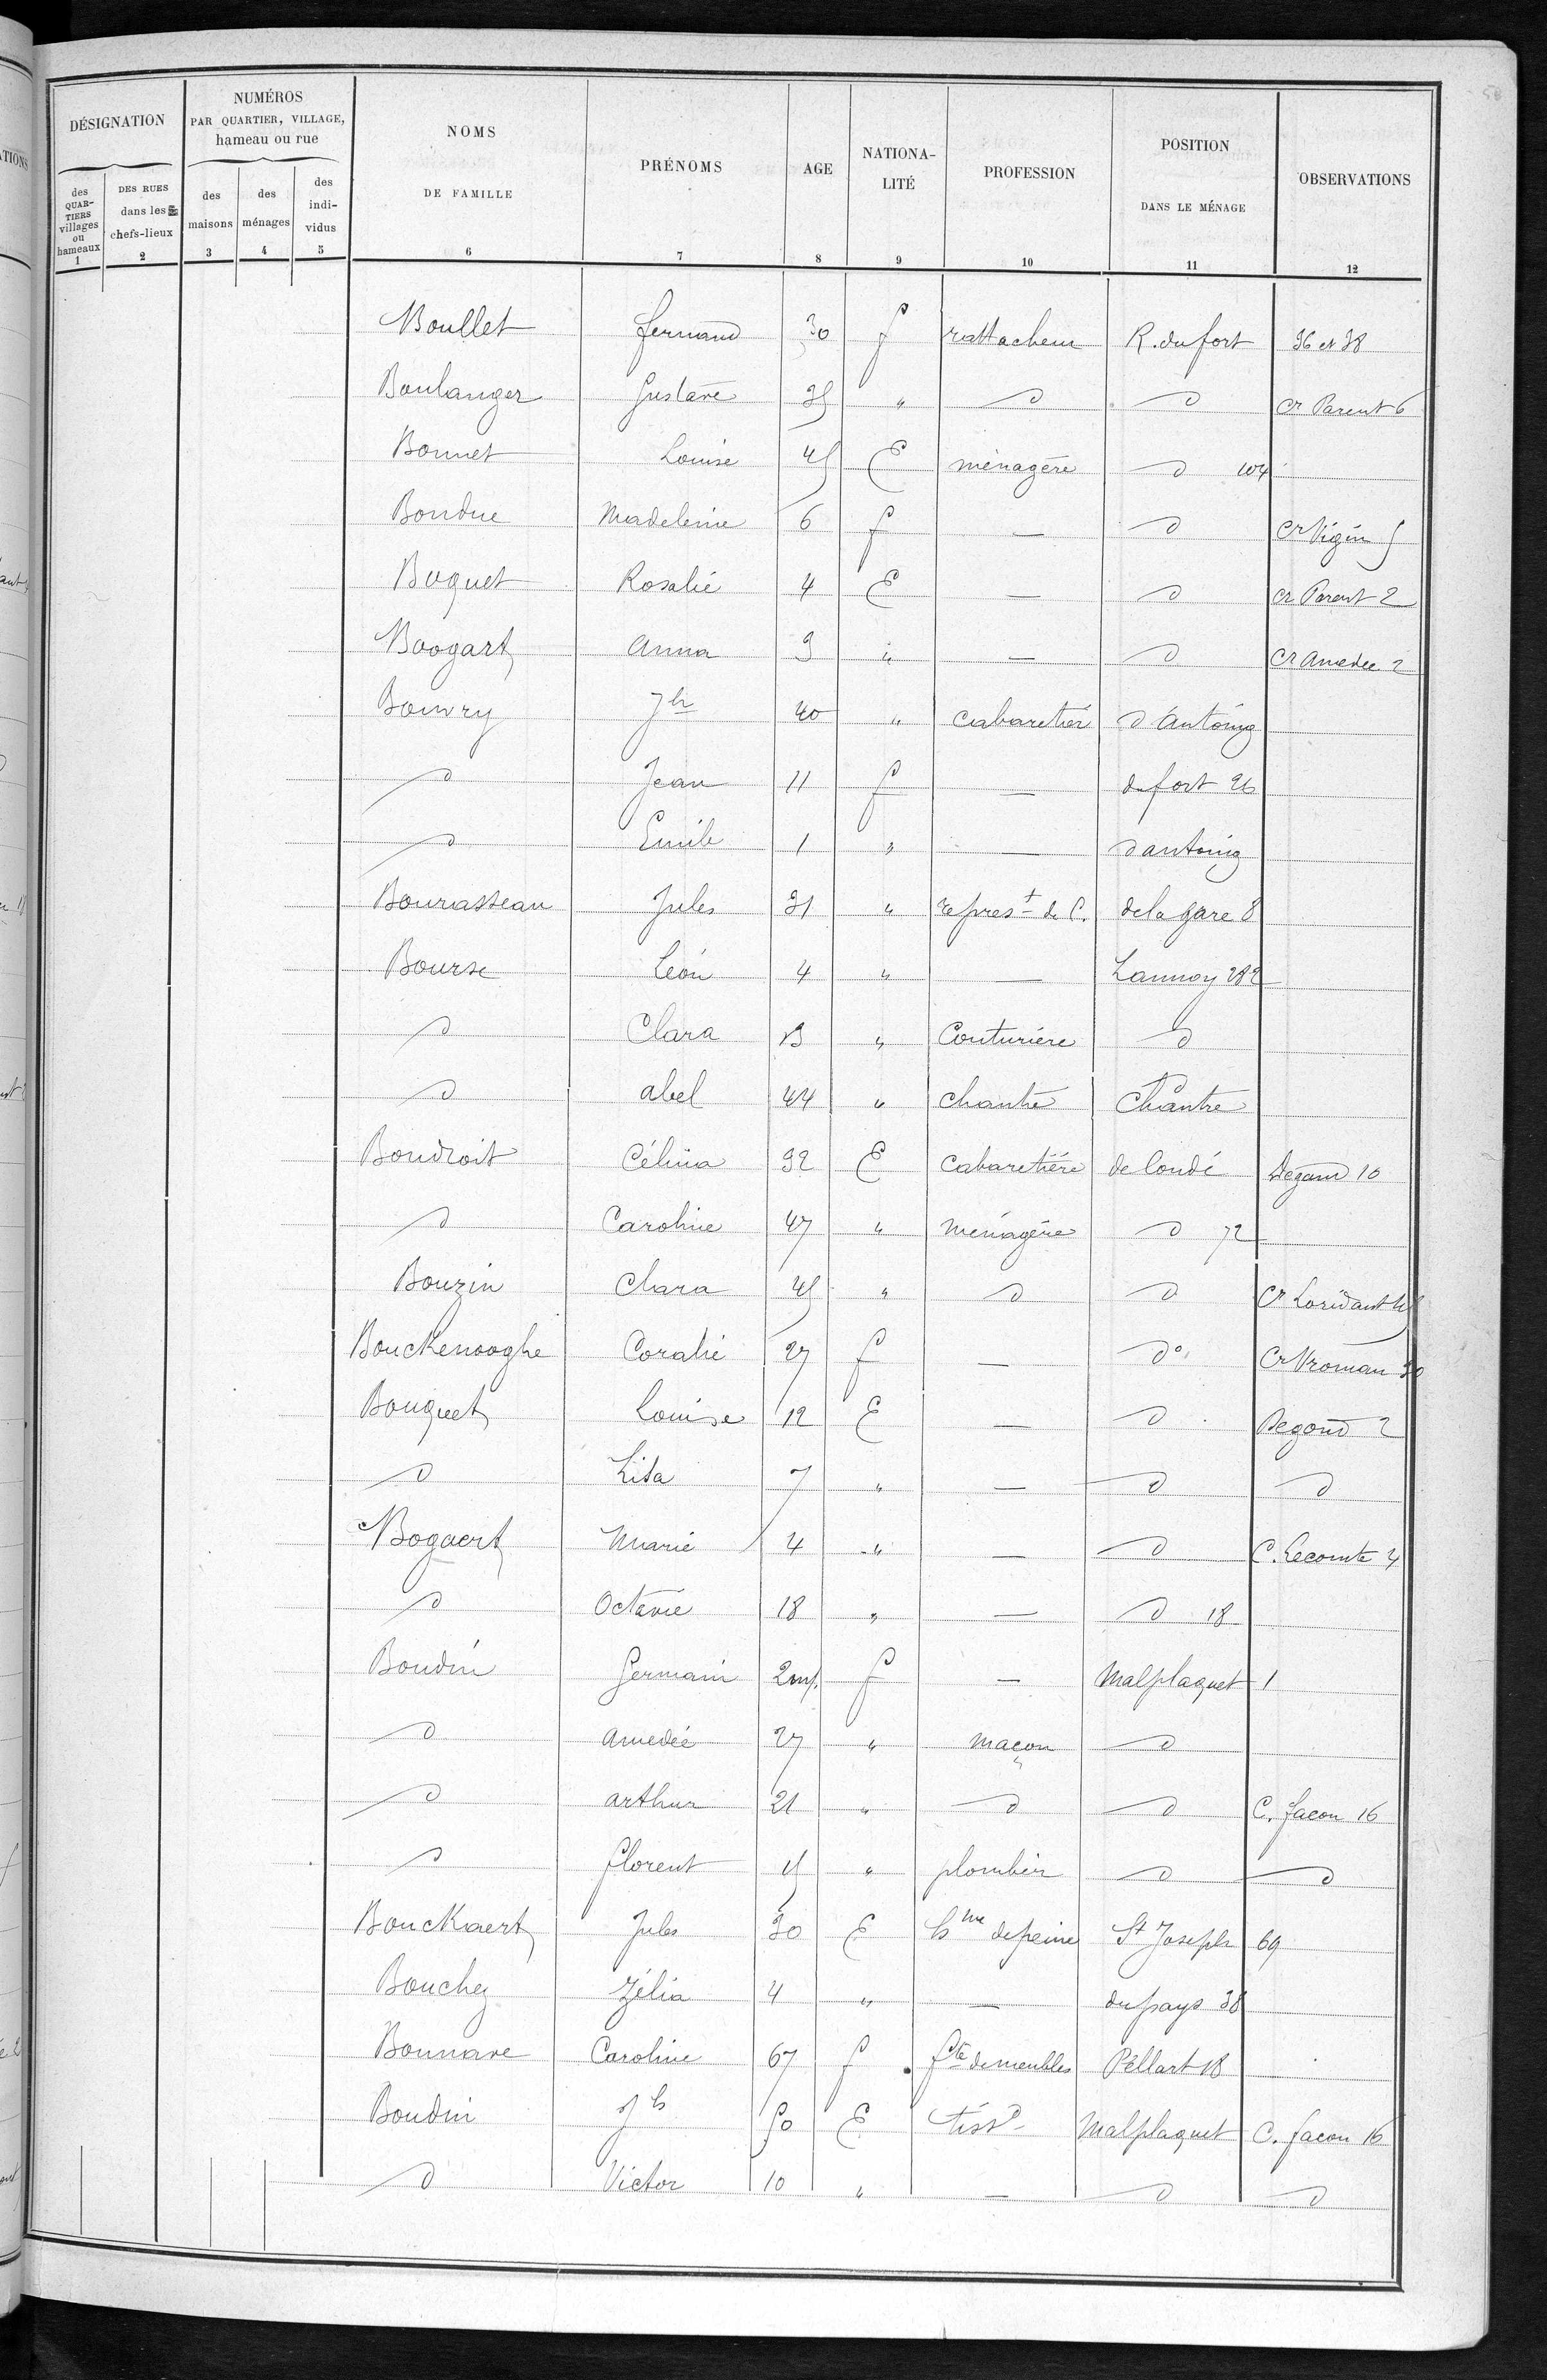 DÉSIGNATION
NUMÉROS PAR QUARTIER, VILLAGE, hameau ou rue
des QUARTIERS villages ou hameaux 1
DES RUES dans les chefs-lieux 2
des maisons 3
des ménages 4
des indi-vidus 5
NOMS DE FAMILLE 6
PRÉNOMS 7
AGE 8
NATIONA-LITÉ 9
PROFESSION 10
POSITION DANS LE MÉNAGE 11
OBSERVATIONS 12
Boullet fernand 30 f rattacheur R. du fort 36 et 38
Boulanger Gustave 35 " d d Cr Parent 6
Bonnet Louise 45 E ménagère d 104
Bondue Madeleine 6 f — d Cr Vigin 5
Boquet Rosalie 4 E — d Cr Parent 2
Boogart Anna 3 " — d Cr Amedee 2
Bouvry Jh 40 " Cabaretier d'Antoing
d Jean 11 f — du fort 26
d Emile 1 " — d'antoing
Bourasseau Jules 31 " représt de C. de la gare 8
Bourse Léon 4 " — Lannoy 282
d Clara 13 " Couturière d
d abel 44 " chantre Chantre
Boudroit Célina 32 E Cabaretière de Condé Degand 10
d Caroline 47 " ménagère d 72
Bouzin Clara 45 " d d Cr Loridant
Bouckenooghe Coralie 27 f — do Cr Vroman 30
Bouquet Louise 12 E — d Degand 2
d Lisa 7 " — d d
Bogaert Marie 4 " — d C. Lecomte 4
d Octavie 18 " — d 18
Boudin Germain 2 m. f — Malplaquet 1
d amedée 27 " maçon d
d arthur 21 " d d C. facon 16
d florent 15 " plombier d d
Bouckaert Jules 30 E hme de peine St Joseph 69
Bouchez Zélia 4 " — du pays 38
Bonnave Caroline 67 f fte de meubles Pellart 18
Boudin Jh 50 E tissd Malplaquet C. facon 16
d Victor 10 " — d d